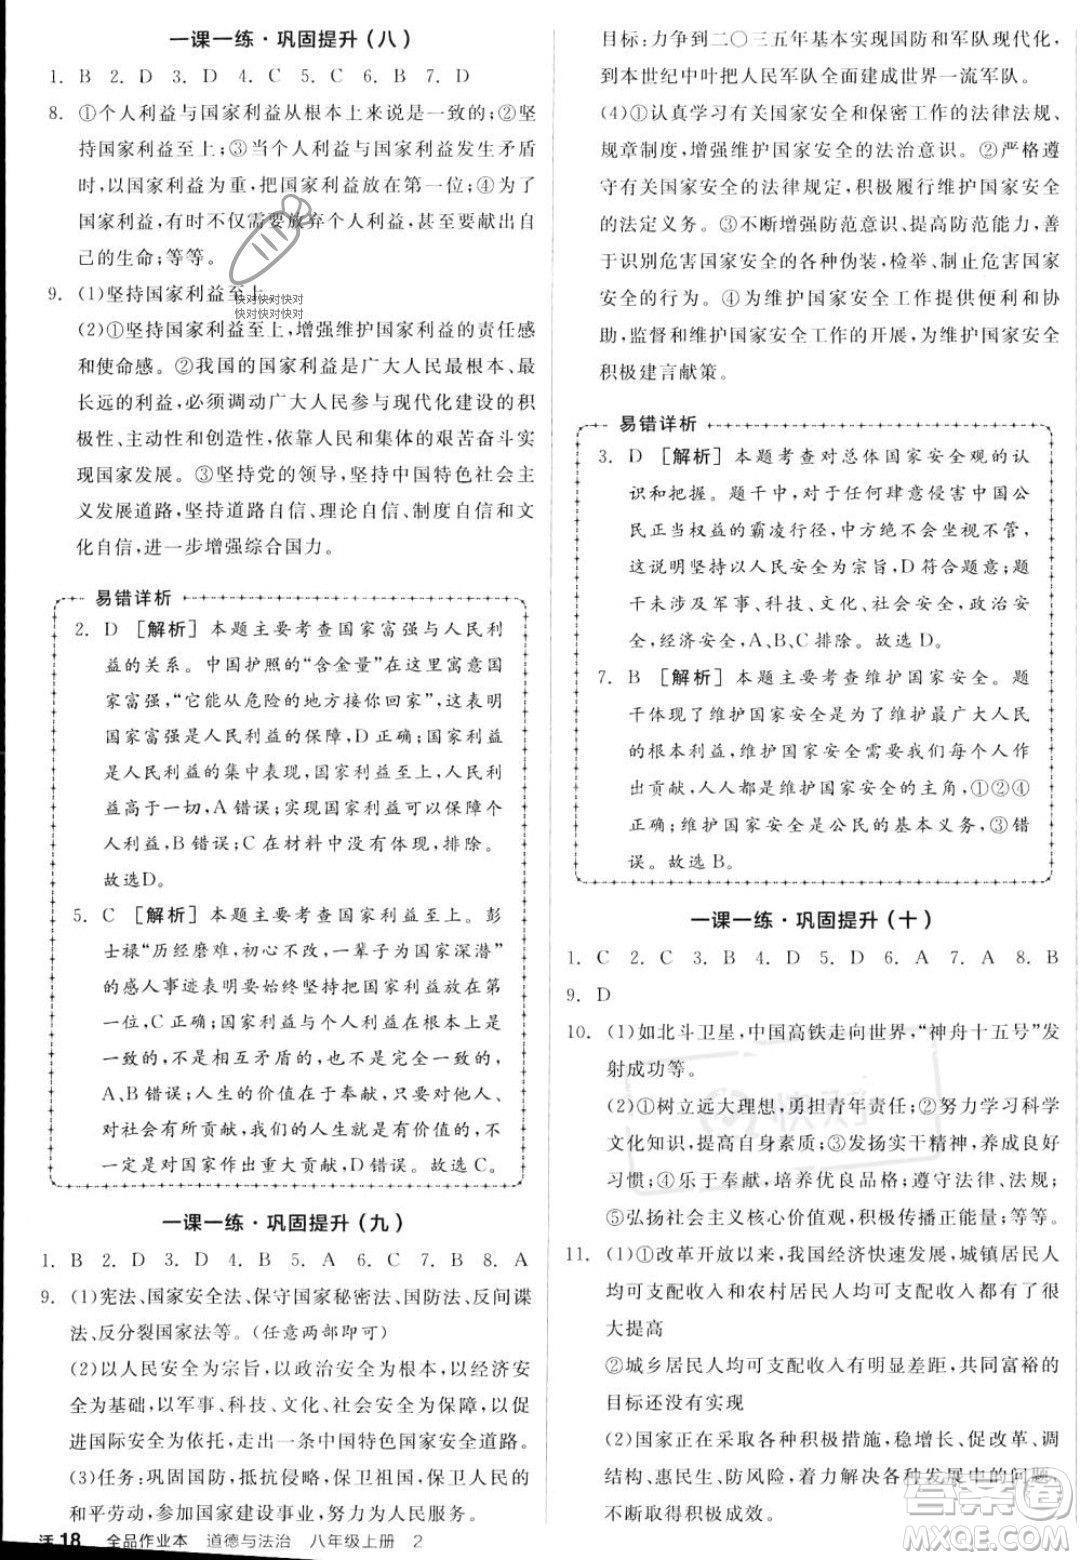 一课一练·巩固提升（八）
1. B 2. D 3. D 4. C 5. C 6. B 7. D
8. ①个人利益与国家利益从根本上来说是一致的；②坚
持国家利益至上；③当个人利益与国家利益发生矛盾
时，以国家利益为重，把国家利益放在第一位；④为了
国家利益，有时不仅需要放弃个人利益，甚至要献出自
己的生命；等等。
9. (1)坚持国家利益至上。
(2)①坚持国家利益至上，增强维护国家利益的责任感
和使命感。②我国的国家利益是广大人民最根本、最
长远的利益，必须调动广大人民参与现代化建设的积
极性、主动性和创造性，依靠人民和集体的艰苦奋斗实
现国家发展。③坚持党的领导，坚持中国特色社会主
义发展道路，坚持道路自信、理论自信、制度自信和文
化自信，进一步增强综合国力。
易错详析
2. D [解析] 本题主要考查国家富强与人民利
益的关系。中国护照的“含金量”在这里寓意国
家富强，“它能从危险的地方接你回家”，这表明
国家富强是人民利益的保障，D正确；国家利益
是人民利益的集中表现，国家利益至上，不是人民
利益高于一切，A错误；实现国家利益可以保障个
人利益，B错误；C在材料中不体现，不选。
故选D。
5. C [解析] 本题主要考查国家利益至上。彭
士禄“历经磨难，初心不改，一辈子为国家深潜”
的感人事迹表明要始终坚持国家利益放在第
一位，C正确；国家利益与个人利益在根本上是一
致的，不是相互矛盾的，也不是完全一致的，
A、B错误；人生的价值在于奉献，只要对他人、
对社会有所贡献，我们的人生就是有价值的，不
一定是对国家作出重大贡献，D错误。故选C。
一课一练·巩固提升（九）
1. B 2. D 3. D 4. B 5. A 6. C 7. B 8. A
9. (1)宪法、国家安全法、保守国家秘密法、国防法、反间谍
法、反分裂国家法等。（任意两部即可）
(2)以人民安全为宗旨，以政治安全为根本，以经济安
全为基础，以军事、科技、文化、社会安全为保障，以促
进国际安全为依托，走出一条中国特色国家安全道路。
(3)任务：巩固国防，抵抗侵略，保卫祖国，保卫人民的
和平劳动，参加国家建设事业，努力为人民服务。
活18 全品作业本 道德与法治 八年级上册 2
目标：力争到二〇三五年基本实现国防和军队现代化，
到本世纪中叶把人民军队全面建成世界一流军队。
(4)①认真学习有关国家安全和保密工作的法律法规、
规章制度，增强维护国家安全的法治意识。②严格遵
守有关国家安全的法律规定，积极履行维护国家安全
的法定义务。③不断增强防范意识，提高防范能力，善
于识别危害国家安全的各种伪装，检举、制止危害国家
安全的行为。④为维护国家安全工作提供便利和协
助，监督和维护国家安全工作的开展，为维护国家安全
积极建言献策。
易错详析
3. D [解析] 本题考查对总体国家安全观的认
识和把握。题干中，对于任何肆意侵害中国公
民正当权益的霸凌行径，中方绝不会坐视不管，
这说明坚持以人民安全为宗旨，D符合题意；题
干未涉及军事、科技、文化、社会安全，政治安
全，经济安全，A、B、C排除。故选D。
7. B [解析] 本题主要考查维护国家安全。题
干体现了维护国家安全是为了维护最广大人民
的根本利益，维护国家安全需要我们每个人作
出贡献，人人都是维护国家安全的主角，①②④
正确；维护国家安全是公民的基本义务，③错
误。故选B。
一课一练·巩固提升（十）
1. C 2. C 3. B 4. D 5. D 6. A 7. A 8. B
9. D
10. (1)如北斗卫星，中国高铁走向世界，“神舟十五号”发
射成功等。
(2)①树立远大理想，勇担青年责任；②努力学习科学
文化知识，提高自身素质；③发扬实干精神，养成良好
习惯；④乐于奉献，培养优良品格；遵守法律、法规；
⑤弘扬社会主义核心价值观，积极传播正能量；等等。
11. (1)①改革开放以来，我国经济快速发展，城镇居民人
均可支配收入和农村居民人均可支配收入都有了很
大提高
②城乡居民人均可支配收入有明显差距，共同富裕的
目标还没有实现
(2)国家正在采取各种措施，稳增长、促改革、调
结构、惠民生、防风险，着力解决发展中的问题，
不断取得积极成效。
快对快对快对
快对快对快对
快对
答案圈